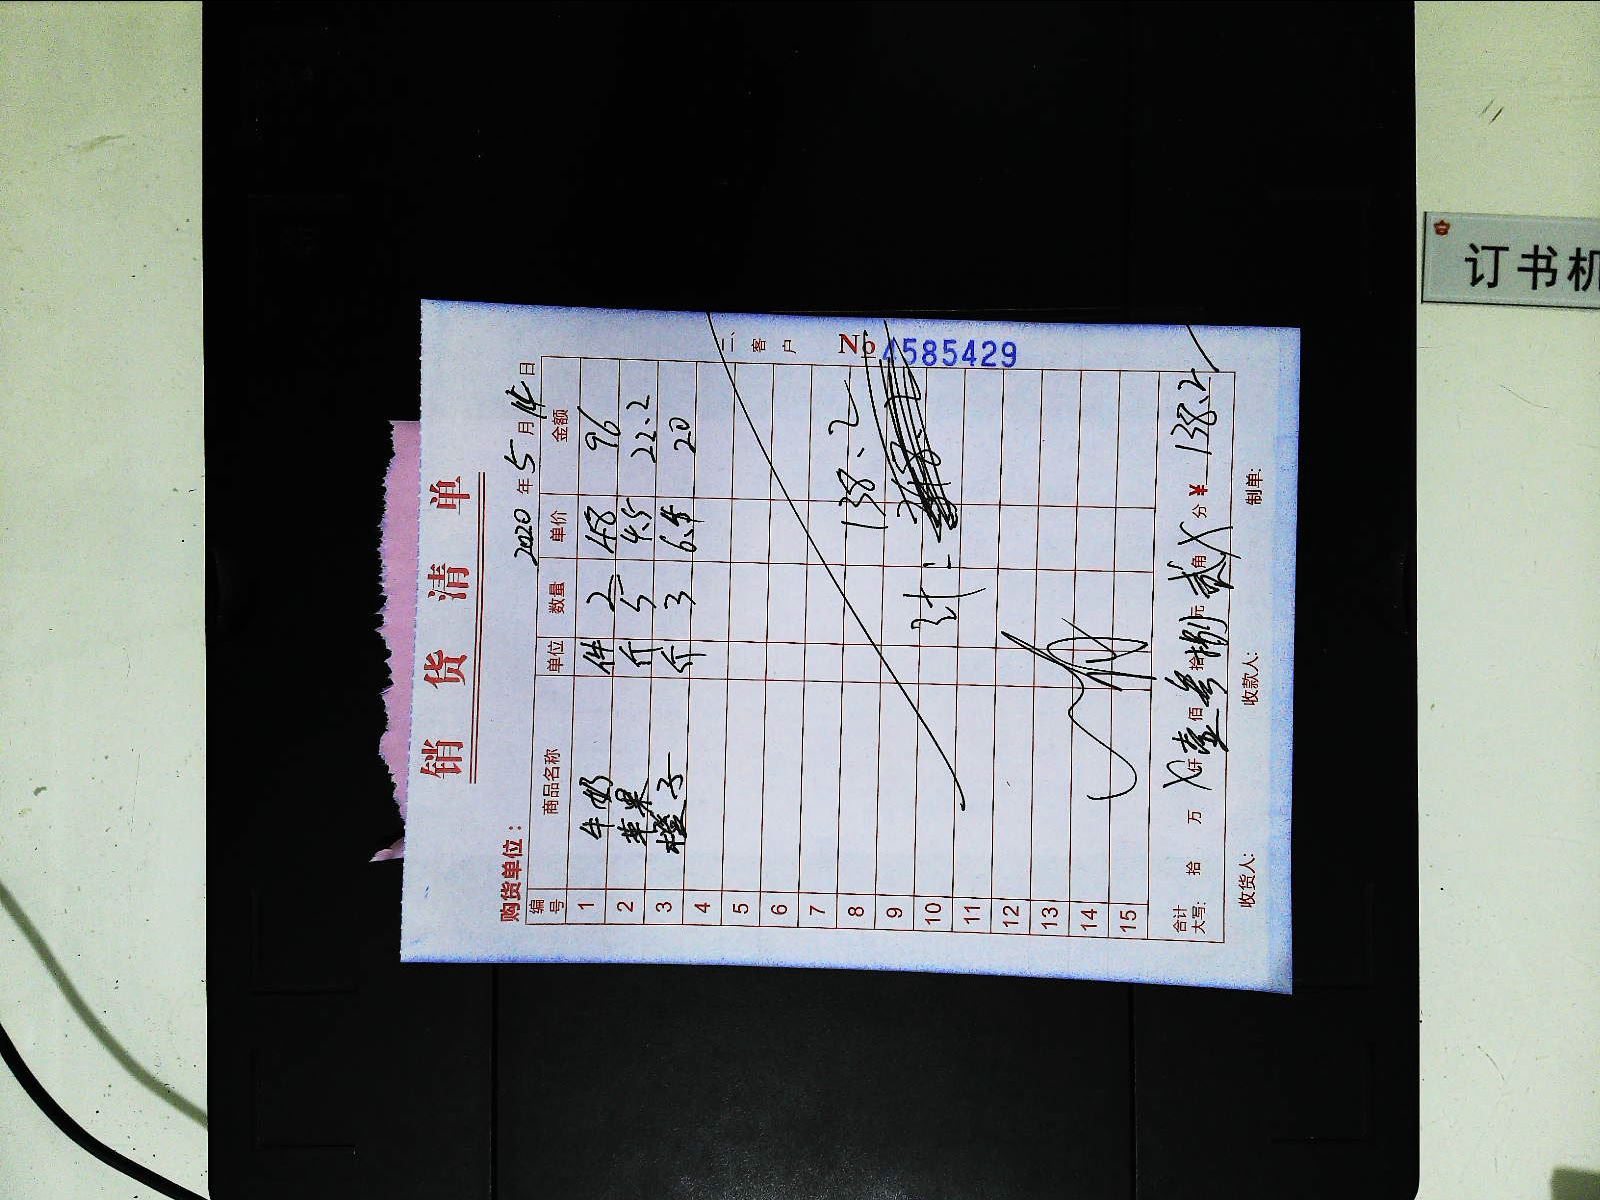 销货清单
购货单位: 2020年5月14日
编号 商品名称 单位 数量 单价 金额
1 牛奶 件 2 48 96
2 苹果 斤 5 4.5 22.2
3 橙子 斤 3 6.5 20
4
5
6
7
8 138.2
9
10 计:
11
12
13
14
15
合计大写: 拾 万 X仟壹佰叁拾捌元贰角X分 ¥ 138.2
收货人: 收款人: 制单:
二、客户
No 4585429
订书机